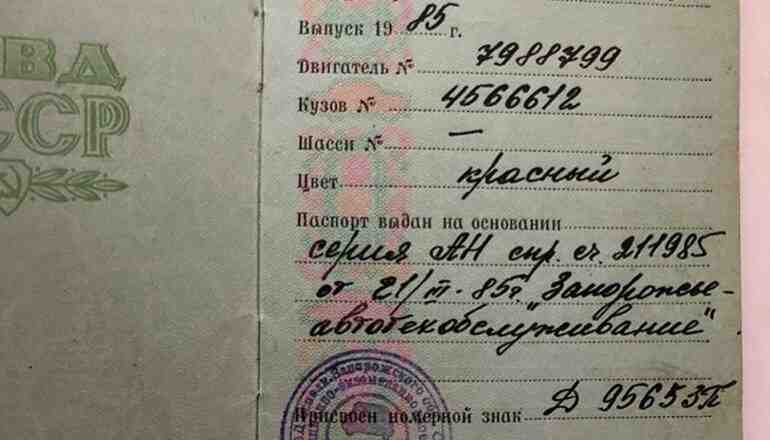 ВД
ССР
Выпуск 1985 г.
Двигатель № 7988799
Кузов № 4566612
Шасси № —
Цвет красный
Паспорт выдан на основании
серия АН спр. сч. 211985
от 21/III-85г "Запорожье-
автотехобслуживание"
Запорожского
Присвоен номерной знак Д 9565ЗП